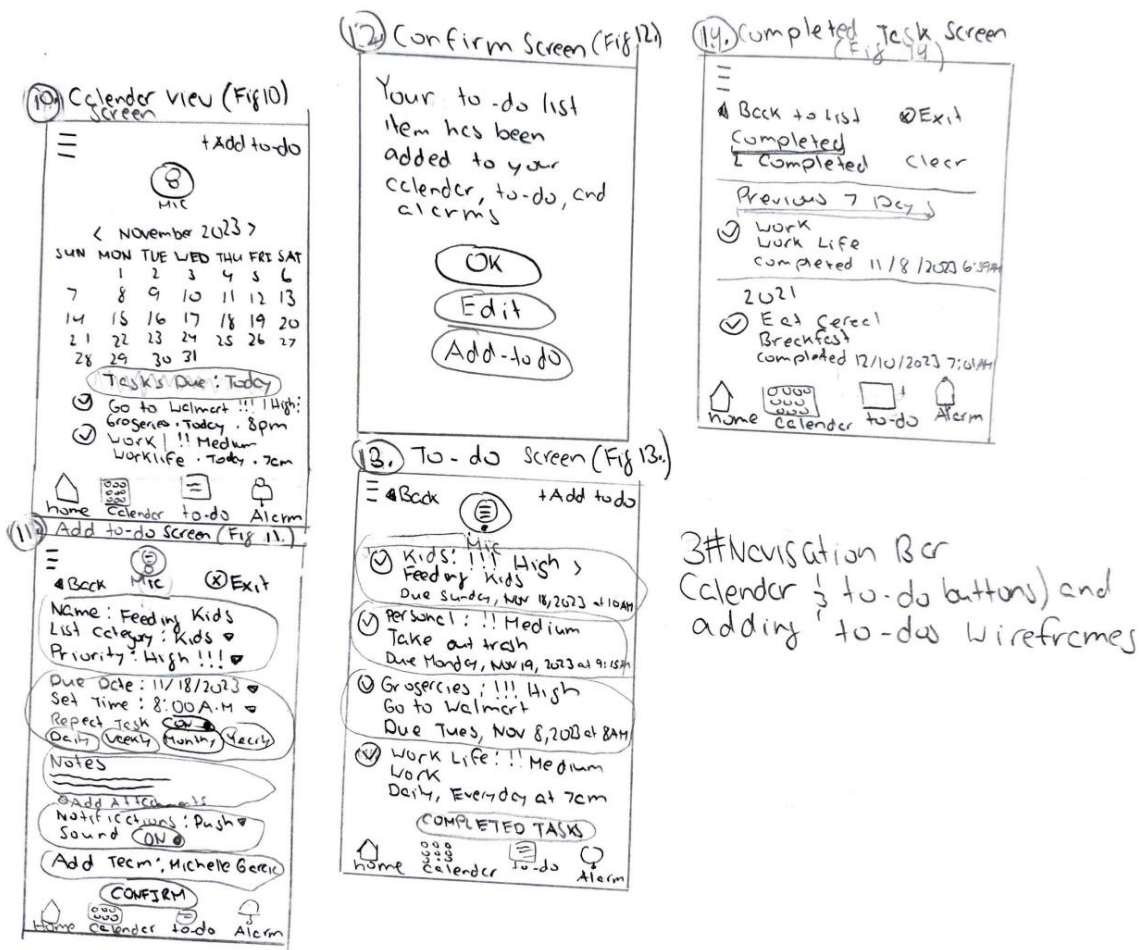 10. Calender view (Fig10)
screen
+Add to-do
Mic
< November 2023 >
SUN MON TUE WED THU FRI SAT
1 2 3 4 5 6
7 8 9 10 11 12 13
14 15 16 17 18 19 20
21 22 23 24 25 26 27
28 29 30 31
Tasks Due: Today
Go to Walmart !!! High
Groseries . Today . 8pm
Work | !! Medium
Worklife . Today . 7am
home Calender to-do Alarm
11. Add to-do Screen (Fig 11.)
Back Mic Exit
Name: Feeding Kids
List Category: Kids
Priority: High !!!
Due Date: 11/18/2023
Set Time: 8:00 A.M
Repeat Task ON
Daily Weekly Monthly Yearly
Notes
Add Attachments
Notifications: Push
Sound ON
Add Team: Michelle Garcia
CONFIRM
Home Calender to-do Alarm
12. Confirm Screen (Fig 12.)
Your to-do list
item has been
added to your
calender, to-do, and
alarms
OK
Edit
Add-to do
13. To-do Screen (Fig 13.)
Back +Add to do
Mic
Kids: !!! High >
Feeding Kids
Due Sunday, Nov 18, 2023 at 10AM
Personal: !! Medium
Take out trash
Due Monday, Nov 19, 2023 at 9:15AM
Grosercies: !!! High
Go to Walmart
Due Tues, Nov 8, 2023 at 8AM
Work Life: !! Medium
Work
Daily, Everyday at 7am
COMPLETED TASKS
home Calender to-do Alarm
14. Completed Task Screen
(Fig 14)
Back to List Exit
Completed
2 Completed Clear
Previous 7 Days
Work
Work Life
Completed 11/8/2023 6:59AM
2021
Eat Cereal
Breckfast
completed 12/10/2023 7:01AM
home Calender to-do Alarm
3#Navigation Bar
Calendar & to-do buttons) and
adding to-dos Wireframes